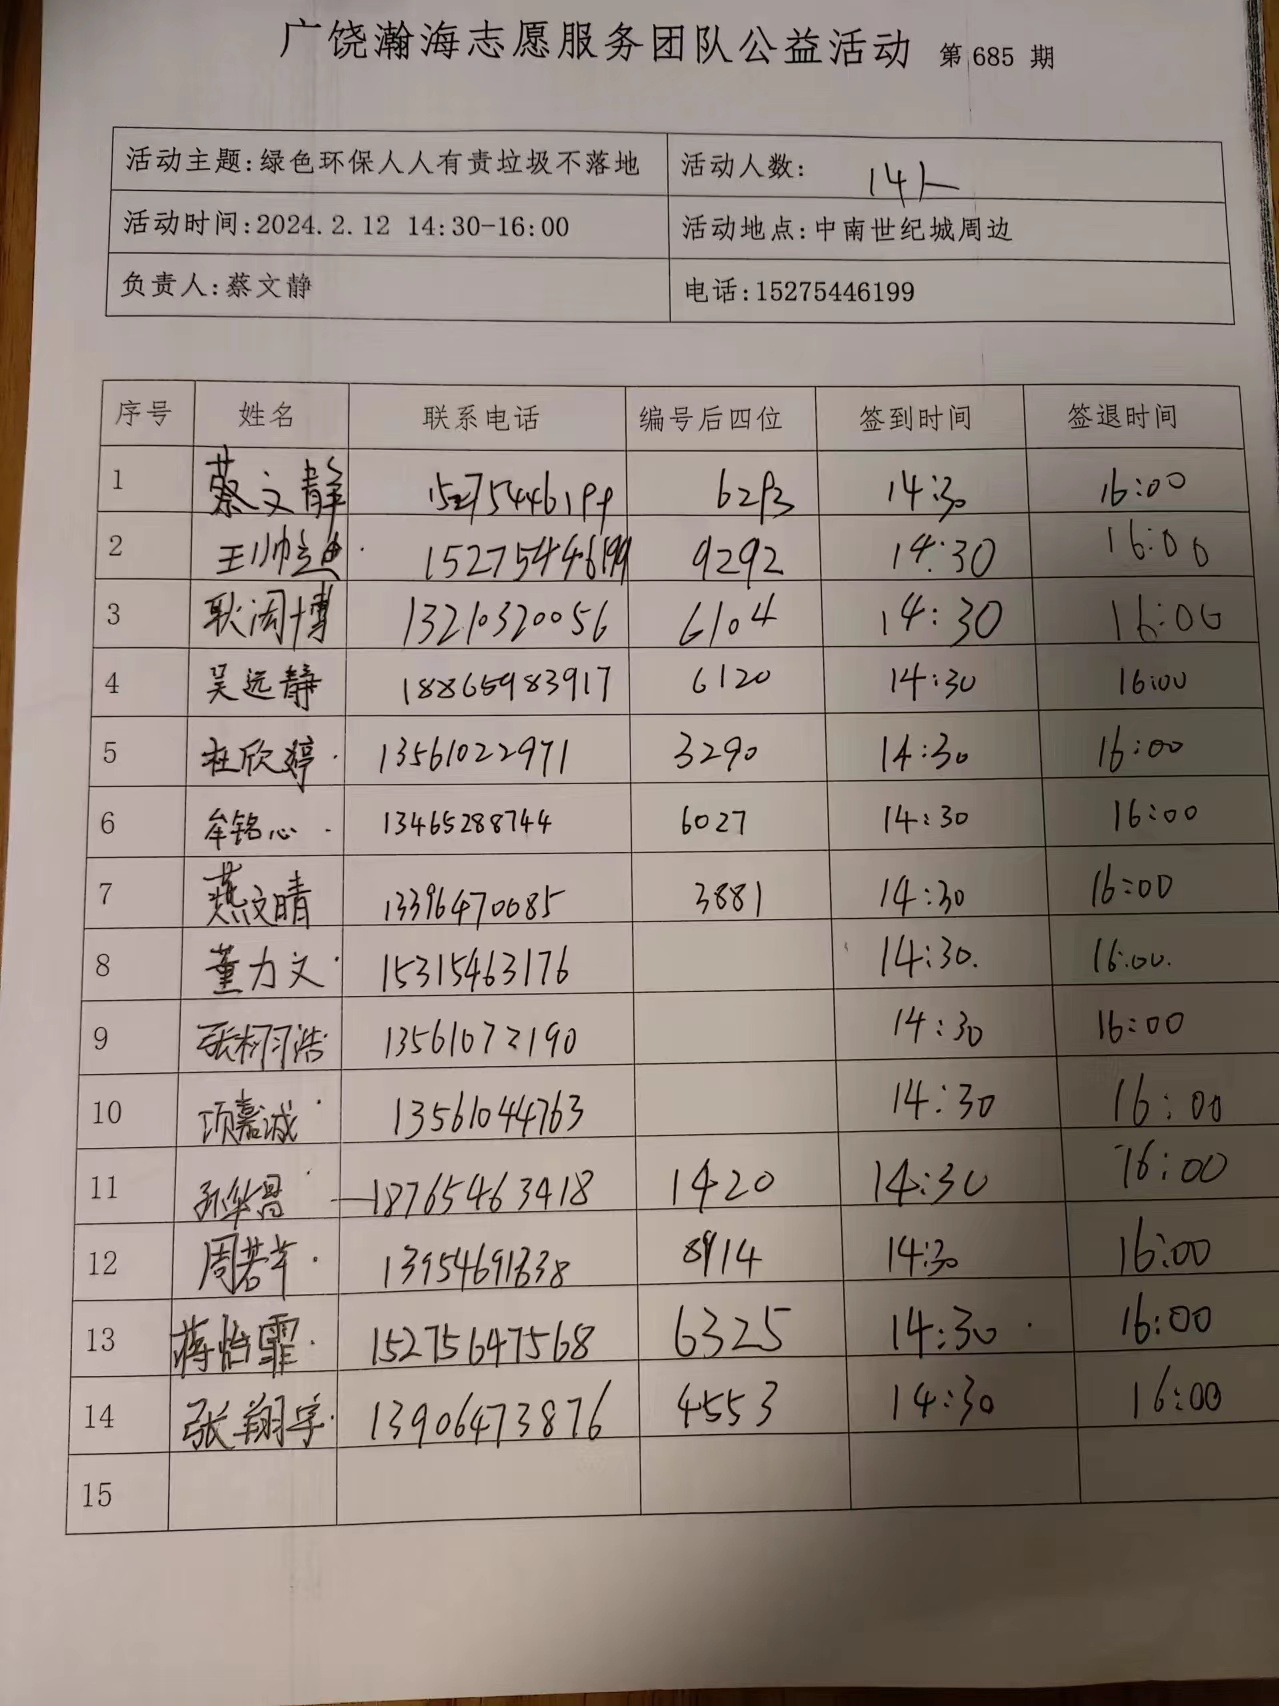 广饶瀚海志愿服务团队公益活动 第685 期
活动主题:绿色环保人人有责垃圾不落地 活动人数: 14人
活动时间:2024.2.12 14:30-16:00 活动地点:中南世纪城周边
负责人:蔡文静 电话:15275446199
序号 姓名 联系电话 编号后四位 签到时间 签退时间
1 蔡文静 15275446199 6293 14:30 16:00
2 15275446199 9292 14:30 16:00
3 耿润博 13210320056 6104 14:30 16:00
4 吴远静 18865983917 6120 14:30 16:00
5 杜欣婷 13561022971 3290 14:30 16:00
6 牟铭心 13465288744 6027 14:30 16:00
7 燕文晴 13396470085 3881 14:30 16:00
8 董力文 15315463176 14:30. 16:00.
9 张柯浩 13561072190 14:30 16:00
10 项嘉诚 13561044763 14:30 16:00
11 18765463418 1420 14:30 16:00
12 周若羊 8914 14:30 16:00
13 蒋怡霏 15275647568 6325 14:30 16:00
14 张翔宇 13906473876 4553 14:30 16:00
15